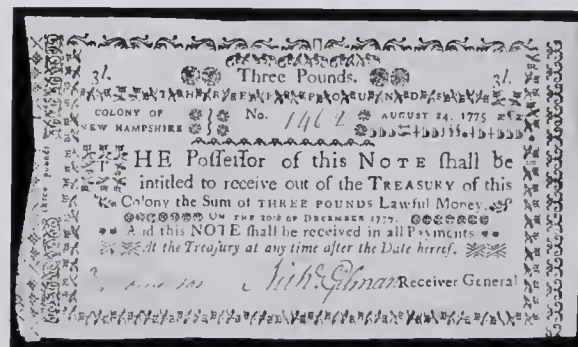 3l. Three Pounds. 3l.
T H R E E P O U N D S
COLONY OF NEW HAMPSHIRE No. 1462 AUGUST 24. 1775
THE Poſſeſſor of this NOTE ſhall be
intitled to receive out of the TREASURY of this
Colony the Sum of THREE POUNDS Lawful Money.
ON THE 20th OF DECEMBER 1779.
And this NOTE ſhall be received in all Payments
At the Treaſury at any time after the Date hereof.
Nichs Gilman Receiver General
three pounds